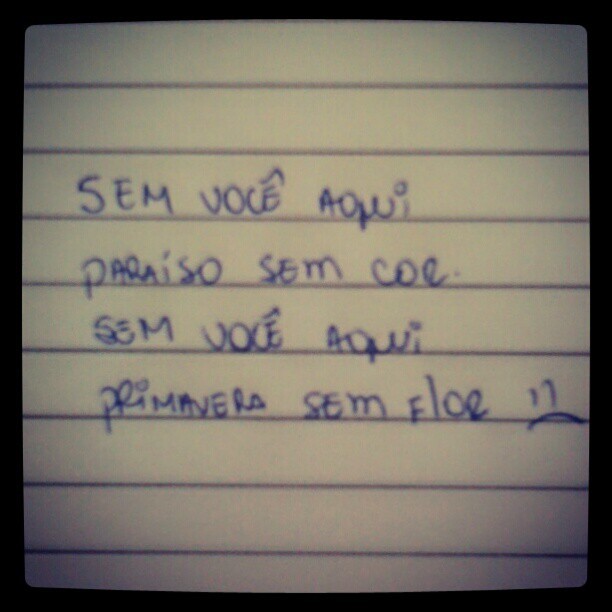 SEM VOCÊ AQUI
PARAÍSO SEM COR.
SEM VOCÊ AQUI
PRIMAVERA SEM FLOR